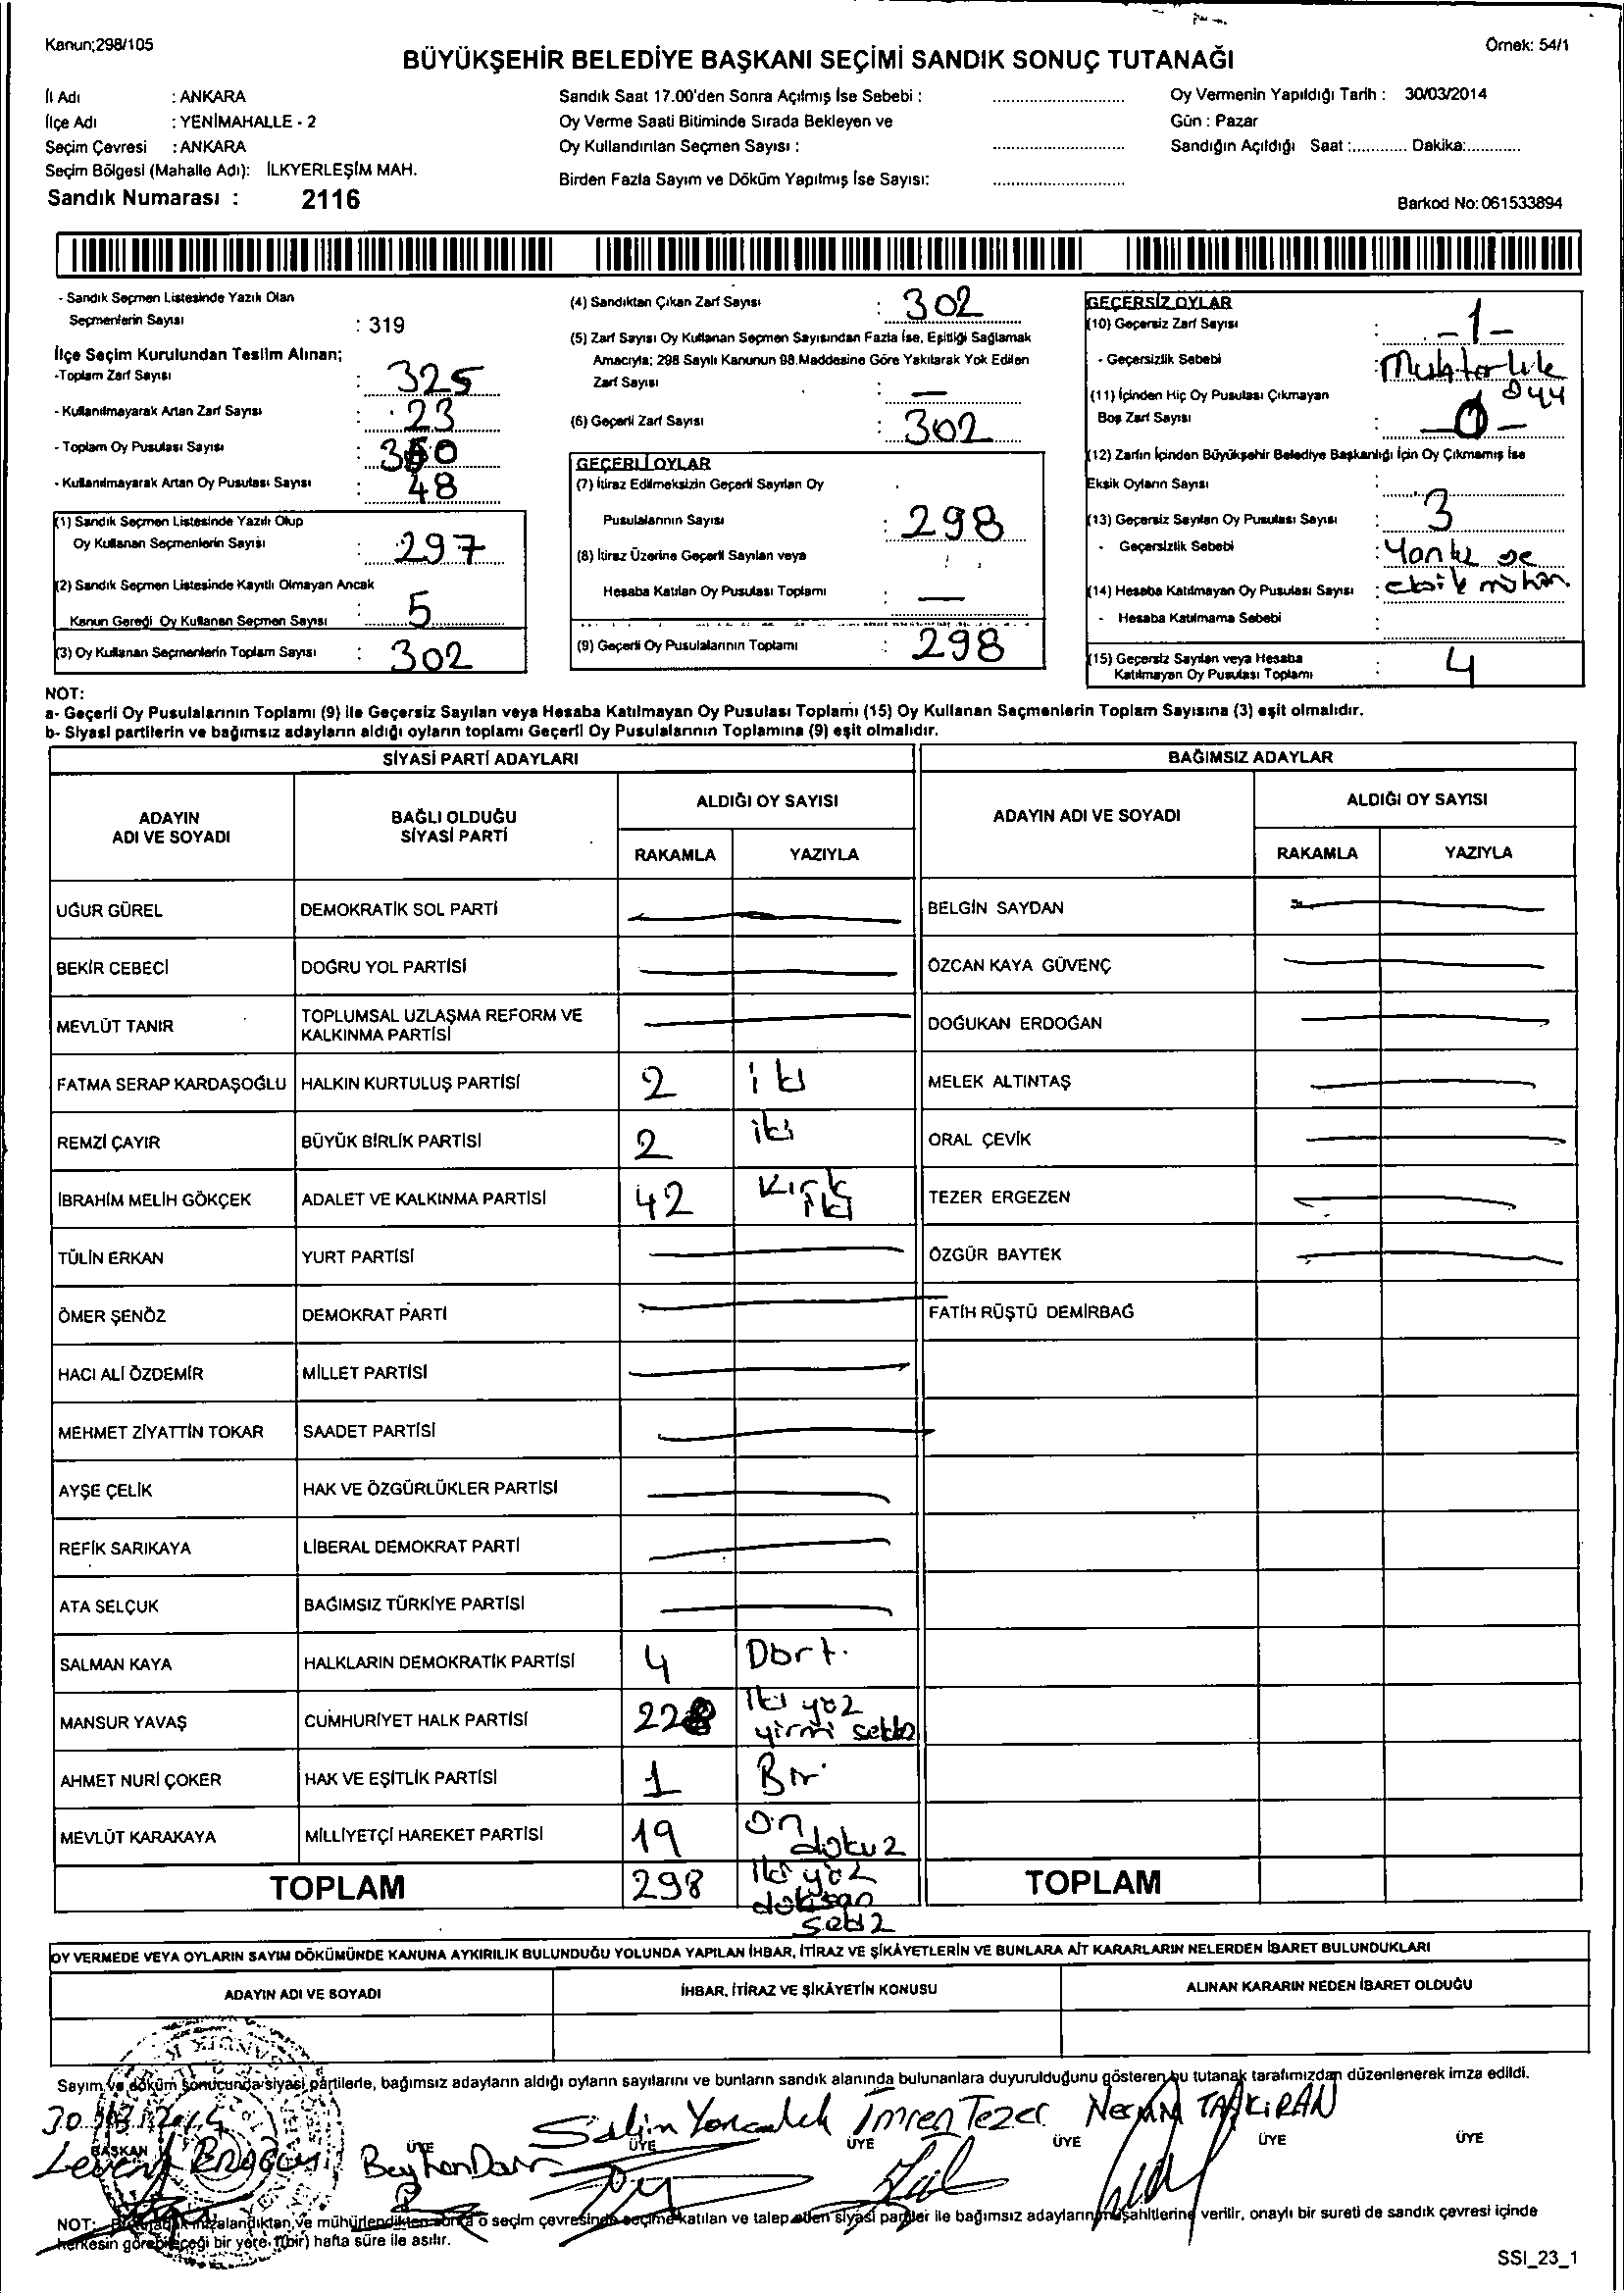 Kanun;298/105
Örnek: 54/1
BÜYÜKŞEHİR BELEDİYE BAŞKANI SEÇİMİ SANDIK SONUÇ TUTANAĞI
İl Adı : ANKARA
İlçe Adı : YENİMAHALLE - 2
Seçim Çevresi : ANKARA
Seçim Bölgesi (Mahalle Adı): İLKYERLEŞİM MAH.
Sandık Numarası : 2116
Sandık Saat 17.00'den Sonra Açılmış İse Sebebi :
Oy Verme Saati Bitiminde Sırada Bekleyen ve
Oy Kullandırılan Seçmen Sayısı :
Birden Fazla Sayım ve Döküm Yapılmış İse Sayısı:
Oy Vermenin Yapıldığı Tarih : 30/03/2014
Gün : Pazar
Sandığın Açıldığı Saat :............ Dakika:............
Barkod No: 061533894
- Sandık Seçmen Listesinde Yazılı Olan
Seçmenlerin Sayısı : 319
İlçe Seçim Kurulundan Teslim Alınan;
-Toplam Zarf Sayısı : 325
- Kullanılmayarak Artan Zarf Sayısı : 23
- Toplam Oy Pusulası Sayısı : 350
- Kullanılmayarak Artan Oy Pusulası Sayısı : 48
(1) Sandık Seçmen Listesinde Yazılı Olup
Oy Kullanan Seçmenlerin Sayısı : 297
(2) Sandık Seçmen Listesinde Kayıtlı Olmayan Ancak
Kanun Gereği Oy Kullanan Seçmen Sayısı : 5
(3) Oy Kullanan Seçmenlerin Toplam Sayısı : 302
(4) Sandıktan Çıkan Zarf Sayısı : 302
(5) Zarf Sayısı Oy Kullanan Seçmen Sayısından Fazla İse, Eşitliği Sağlamak
Amacıyla; 298 Sayılı Kanunun 98.Maddesine Göre Yakılarak Yok Edilen
Zarf Sayısı : —
(6) Geçerli Zarf Sayısı : 302
GEÇERLİ OYLAR
(7) İtiraz Edilmeksizin Geçerli Sayılan Oy
Pusulalarının Sayısı : 298
(8) İtiraz Üzerine Geçerli Sayılan veya
Hesaba Katılan Oy Pusulası Toplamı : —
(9) Geçerli Oy Pusulalarının Toplamı : 298
GEÇERSİZ OYLAR
(10) Geçersiz Zarf Sayısı : -1-
- Geçersizlik Sebebi : Muhtarlık
(11) İçinden Hiç Oy Pusulası Çıkmayan
Boş Zarf Sayısı : -0-
(12) Zarfın İçinden Büyükşehir Belediye Başkanlığı İçin Oy Çıkmamış İse
Eksik Oyların Sayısı :
(13) Geçersiz Sayılan Oy Pusulası Sayısı : 3
- Geçersizlik Sebebi :
(14) Hesaba Katılmayan Oy Pusulası Sayısı : eksik mühür
- Hesaba Katılmama Sebebi :
(15) Geçersiz Sayılan veya Hesaba
Katılmayan Oy Pusulası Toplamı : 4
NOT:
a- Geçerli Oy Pusulalarının Toplamı (9) ile Geçersiz Sayılan veya Hesaba Katılmayan Oy Pusulası Toplamı (15) Oy Kullanan Seçmenlerin Toplam Sayısına (3) eşit olmalıdır.
b- Siyasi partilerin ve bağımsız adayların aldığı oyların toplamı Geçerli Oy Pusulalarının Toplamına (9) eşit olmalıdır.
SİYASİ PARTİ ADAYLARI
BAĞIMSIZ ADAYLAR
ADAYIN
ADI VE SOYADI
BAĞLI OLDUĞU
SİYASİ PARTİ
ALDIĞI OY SAYISI
RAKAMLA YAZIYLA
ADAYIN ADI VE SOYADI
ALDIĞI OY SAYISI
RAKAMLA YAZIYLA
UĞUR GÜREL DEMOKRATİK SOL PARTİ — BELGİN SAYDAN —
BEKİR CEBECİ DOĞRU YOL PARTİSİ — ÖZCAN KAYA GÜVENÇ —
MEVLÜT TANIR TOPLUMSAL UZLAŞMA REFORM VE
KALKINMA PARTİSİ — DOĞUKAN ERDOĞAN —
FATMA SERAP KARDAŞOĞLU HALKIN KURTULUŞ PARTİSİ 2 iki MELEK ALTINTAŞ —
REMZİ ÇAYIR BÜYÜK BİRLİK PARTİSİ 2 iki ORAL ÇEVİK —
İBRAHİM MELİH GÖKÇEK ADALET VE KALKINMA PARTİSİ 42 Kırk iki TEZER ERGEZEN —
TÜLİN ERKAN YURT PARTİSİ — ÖZGÜR BAYTEK —
ÖMER ŞENÖZ DEMOKRAT PARTİ — FATİH RÜŞTÜ DEMİRBAĞ
HACI ALİ ÖZDEMİR MİLLET PARTİSİ —
MEHMET ZİYATTİN TOKAR SAADET PARTİSİ —
AYŞE ÇELİK HAK VE ÖZGÜRLÜKLER PARTİSİ —
REFİK SARIKAYA LİBERAL DEMOKRAT PARTİ —
ATA SELÇUK BAĞIMSIZ TÜRKİYE PARTİSİ —
SALMAN KAYA HALKLARIN DEMOKRATİK PARTİSİ 4 Dört.
MANSUR YAVAŞ CUMHURİYET HALK PARTİSİ 228 iki yüz
yirmi sekiz
AHMET NURİ ÇOKER HAK VE EŞİTLİK PARTİSİ 1 Bir
MEVLÜT KARAKAYA MİLLİYETÇİ HAREKET PARTİSİ 19 on
dokuz
TOPLAM 298 iki yüz
doksan
sekiz
TOPLAM
OY VERMEDE VEYA OYLARIN SAYIM DÖKÜMÜNDE KANUNA AYKIRILIK BULUNDUĞU YOLUNDA YAPILAN İHBAR, İTİRAZ VE ŞİKÂYETLERİN VE BUNLARA AİT KARARLARIN NELERDEN İBARET BULUNDUKLARI
ADAYIN ADI VE SOYADI İHBAR, İTİRAZ VE ŞİKÂYETİN KONUSU ALINAN KARARIN NEDEN İBARET OLDUĞU
Sayım ve döküm sonucunda siyasi partilerle, bağımsız adayların aldığı oyların sayılarını ve bunların sandık alanında bulunanlara duyurulduğunu gösteren bu tutanak tarafımızdan düzenlenerek imza edildi.
Selim Imren Tezer
BAŞKAN ÜYE ÜYE ÜYE ÜYE ÜYE ÜYE
Levent
NOT: Bu tutanak imzalandıktan ve mühürlendikten sonra o seçim çevresinde seçime katılan ve talep eden siyasi partiler ile bağımsız adayların müşahitlerine verilir, onaylı bir sureti de sandık çevresi içinde
herkesin görebileceği bir yere 1(bir) hafta süre ile asılır.
SSI_23_1